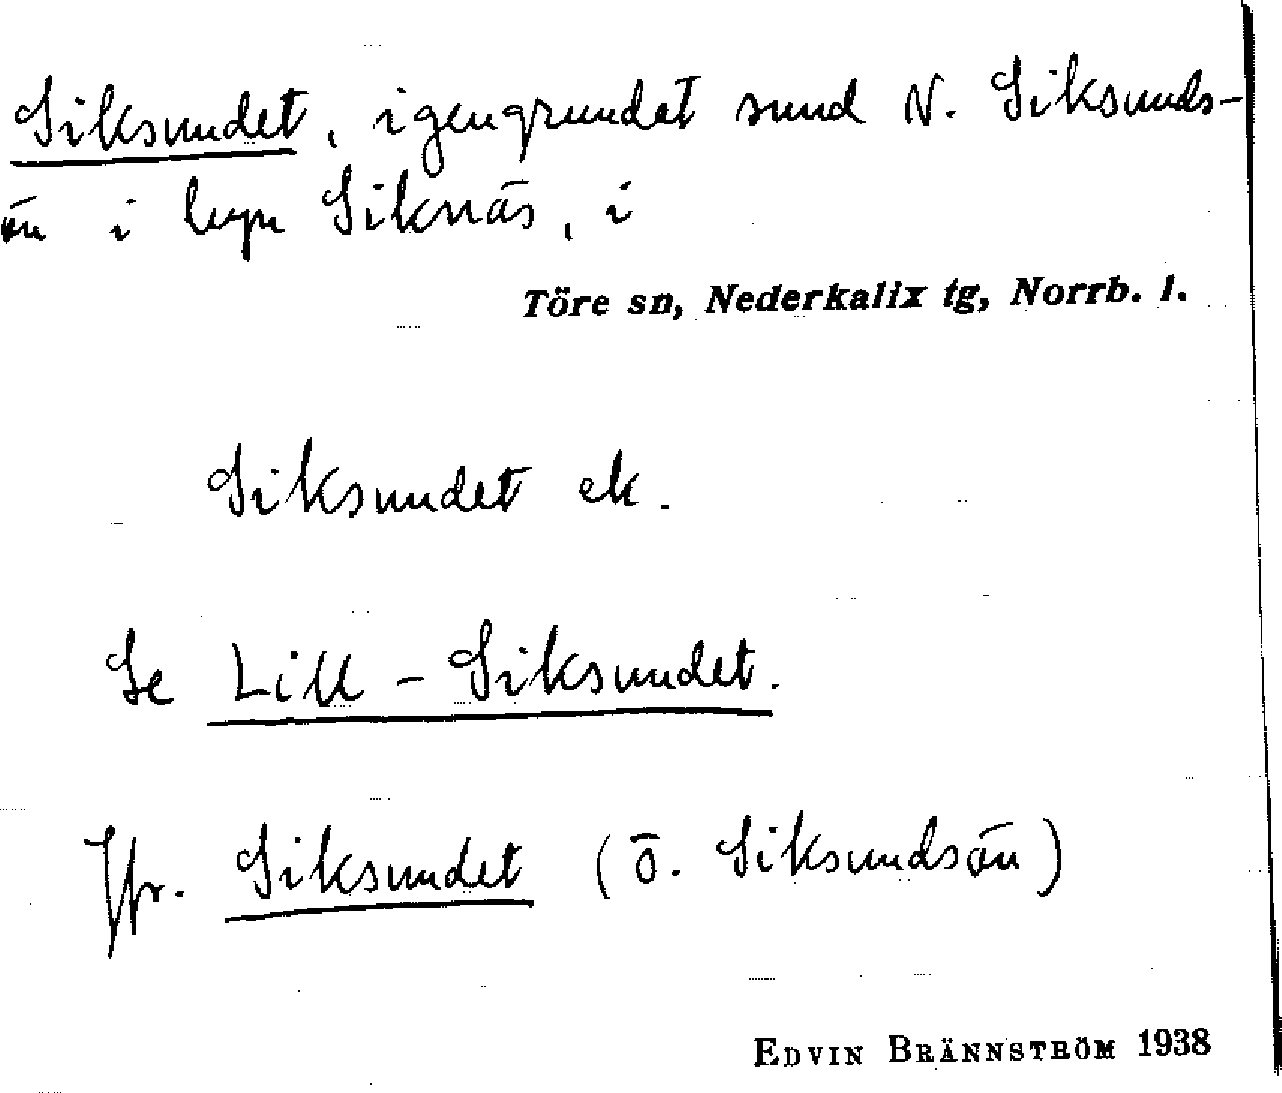 Siksundet, igengrundat sund N. Siksunds-
ön i byn Siknäs, i
Töre sn, Nederkalix tg, Norrb. l.
Siksundet ek.
Se Lill-Siksundet.
Jfr. Siksundet (Ö. Siksundsön)
EDVIN BRÄNNSTRÖM 1938